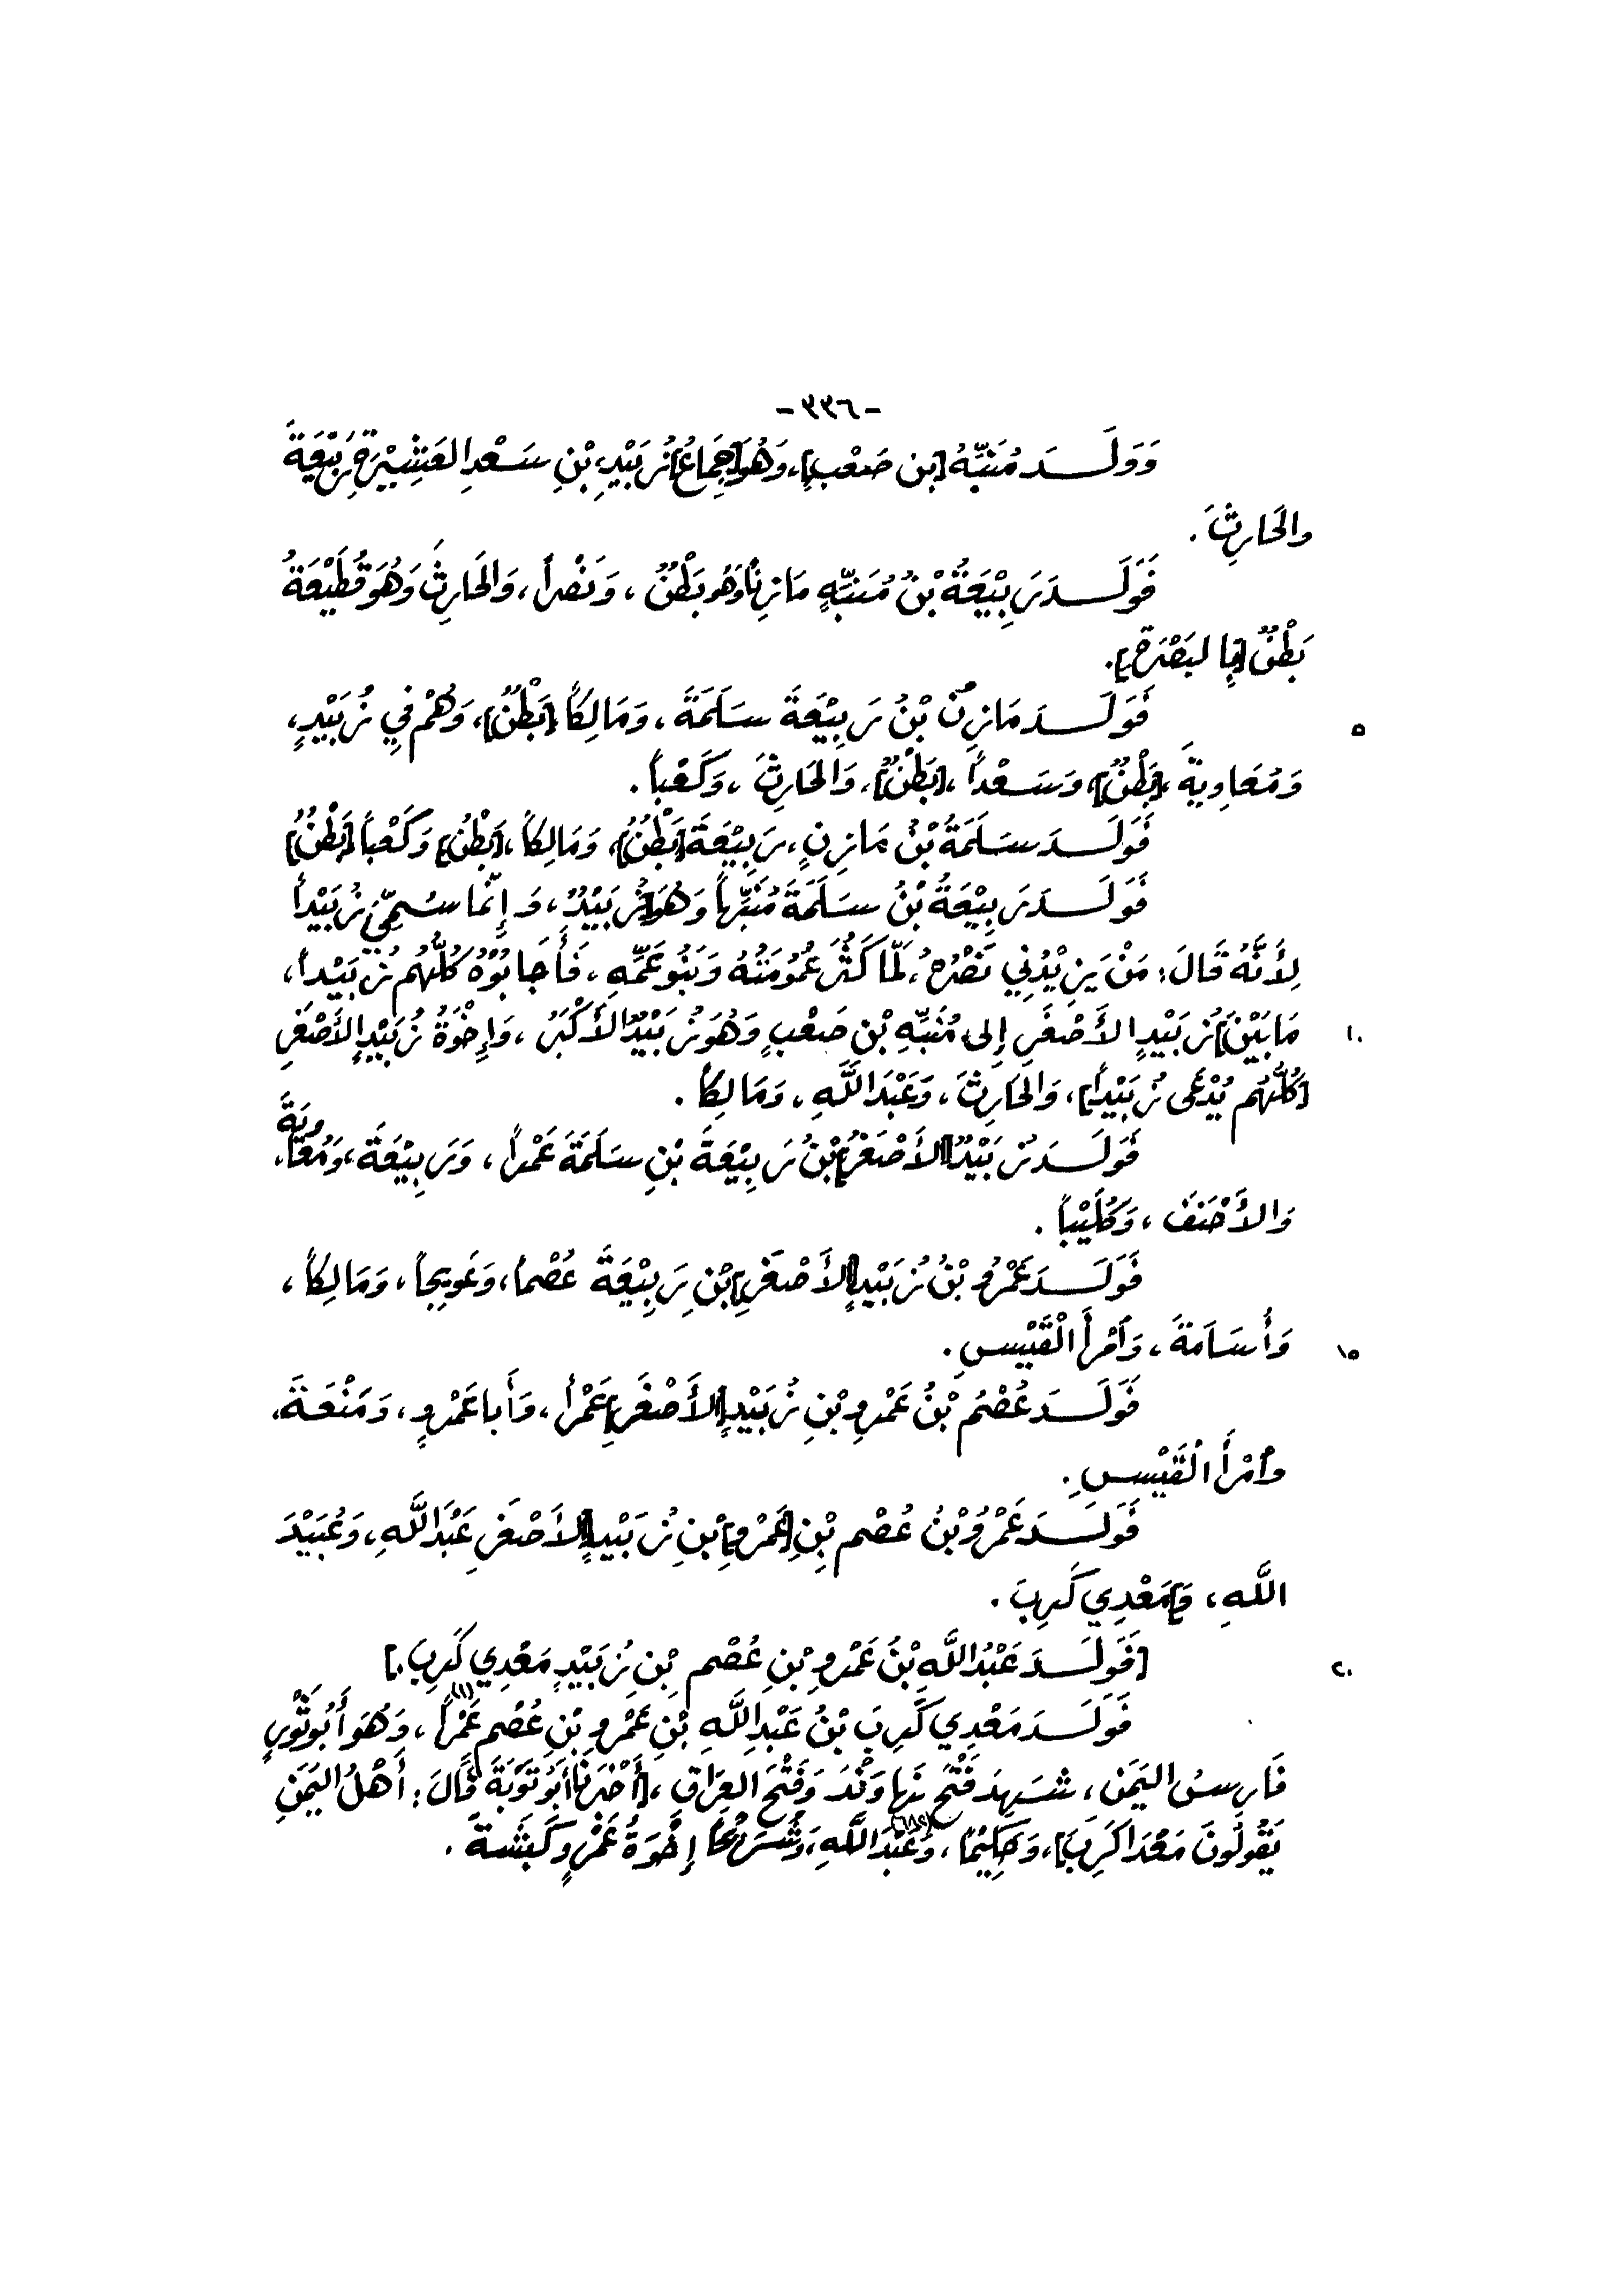 -٣٣٦-
وَوَلَـــدَ مُنَبِّهُ [بن صَعْبٍ]، وَهُوَ [جِمَاعُ] زُبَيْدِ، بْنِ سَعْدِ العَشِيْرَةِ رَبِيْعَةَ
والحَارِثَ.
فَوَلَـــدَ رَبِيْعَةُ بْنُ مُنَبِّهٍ مَازِناً وَهُو بَطْنٌ، وَنَصْراً، وَالحَارِثَ وَهُوَ قُطَيْعَةُ
بَطْنٌ [بِالبَصْرَةِ].
فَوَلَـــدَ مَازِنُ بْنُ رَبِيْعَةَ سَلَمَةَ، وَمَالِكاً [بَطْنٌ]، وَهُمْ فِي زُبَيْدٍ،
٥
وَمُعَاوِيَةَ [بَطْنٌ]، وَسَعْداً، [بَطْنٌ]، وَالحَارِثَ، وَكَعْباً.
فَوَلَـــدَ سَلَمَةُ بْنُ مَازِنٍ، رَبِيْعَةَ [بَطْنٌ]، وَمَالِكاً، [بَطْنٌ] وَكَعْباً [بَطْنٌ]
فَوَلَـــدَ رَبِيْعَةُ بْنُ سَلَمَةَ مُنَبِّهاً وَهُوَ [زُبَيْدٌ، وَإِنَّمَا سُمِّيَ زُبَيْداً
لِأَنَّهُ قَالَ: مَنْ يَزِيْدُنِي نَصْرَهُ، لَمَّا كَثُرَ عُمُومَتُهُ وَبَنُو عَمِّهِ، فَأَجَابُوْهُ كُلُّهُم زُبَيْداً،
مَا بَيْنَ] زُبَيْدٍ الأَصْغَرِ إِلى مُنَبِّهِ بْنِ صَعْبٍ وَهُوَ زُبَيْدٌ الأَكْبَرُ، وَإِخْوَةُ زُبَيْدٍ الأَصْغَرِ
١٠
[كُلُّهُم يُدْعَى زُبَيْداً]، وَالحَارِثَ، وَعَبْدَ اللَّهِ، وَمَالِكاً.
فَوَلَـــدَ زُبَيْدٌ [الأَصْغَرُ] بْنُ رَبِيْعَةَ بْنِ سَلَمَةَ عَمْراً، وَرَبِيْعَةَ، وَمُعَاوِيَةَ،
وَالأَحْنَفَ، وَكُلَيْباً.
فَوَلَـــدَ عَمْرُو بْنُ زُبَيْدٍ [الأَصْغَرِ] بْنِ رَبِيْعَةَ عُصْماً، وَعَوِيجاً، وَمَالِكاً،
وَأُسَامَةَ، وَامْرَأَ الْقَيْسِ.
١٥
فَوَلَـــدَ عُصْمُ بْنُ عَمْرِو بْنِ زُبَيْدٍ [الأَصْغَرِ] عَمْراً، وَأَبا عَمْرٍو، وَمَنْعَةَ،
وامْرَأَ الْقَيْسِ.
فَوَلَـــدَ عَمْرُو بْنُ عُصْمِ بْنِ [عَمْرِو] بْنِ زُبَيْدٍ [الأَصْغَرِ عَبْدَ اللَّهِ، وَعُبَيْدَ
اللَّهِ، وَ] مَعْدِي كَرِبَ.
[فَوَلَـــدَ عَبْدُ اللَّهِ بْنُ عَمْرِو بْنِ عُصْمِ بْنِ زُبَيْدٍ مَعْدِي كَرِبَ.]
٢٠
فَوَلَـــدَ مَعْدِي كَرِبَ بْنُ عَبْدِ اللَّهِ بْنِ عَمْرِو بْنِ عُصْمٍ عَمْراً(١)، وَهُوَ أَبُو ثَوْرٍ
فَارِسُ اليَمَنِ، شَهِدَ فَتْحَ نَهَاوَنْدَ وَفَتْحَ العِرَاقِ، [أَخْبَرَنَا أَبُو تَوْبَةَ قَالَ: أَهْلُ اليَمَنِ
يَقُولُونَ مَعْدَا كَرِبَ]، وَحَلِيْماً، وَعَبْدَ اللَّهِ، وَشُرَعاً إِخْوَةُ عَمْرٍو كَبْشَةَ.